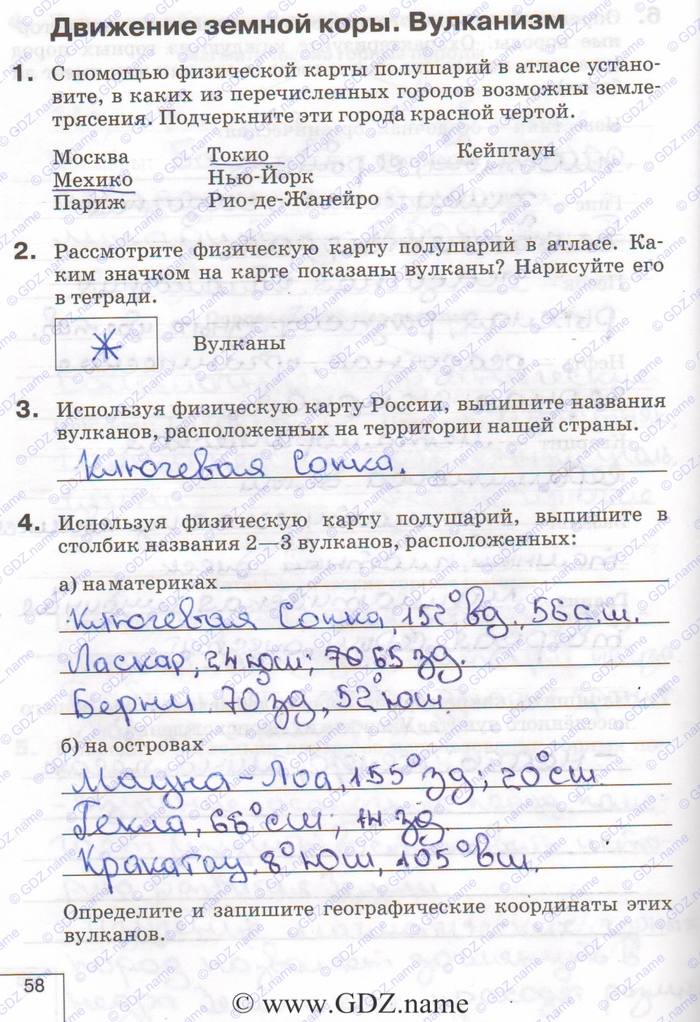 Движение земной коры. Вулканизм
1. С помощью физической карты полушарий в атласе устано-
вите, в каких из перечисленных городов возможны земле-
трясения. Подчеркните эти города красной чертой.
Москва Токио Кейптаун
Мехико Нью-Йорк
Париж Рио-де-Жанейро
2. Рассмотрите физическую карту полушарий в атласе. Ка-
ким значком на карте показаны вулканы? Нарисуйте его
в тетради.
Вулканы
3. Используя физическую карту России, выпишите названия
вулканов, расположенных на территории нашей страны.
Ключевая Сопка.
4. Используя физическую карту полушарий, выпишите в
столбик названия 2—3 вулканов, расположенных:
а) на материках
Ключевая Сопка, 152° вд, 56 с.ш.
Ласкар, 24 юш; 70 65 зд.
Берни 70 зд, 52° юш.
б) на островах
Мауна-Лоа, 155° зд; 20° сш
Гекла, 66° сш; 14 зд.
Кракатау. 8° юш, 105° вш.
Определите и запишите географические координаты этих
вулканов.
58
© www.GDZ.name